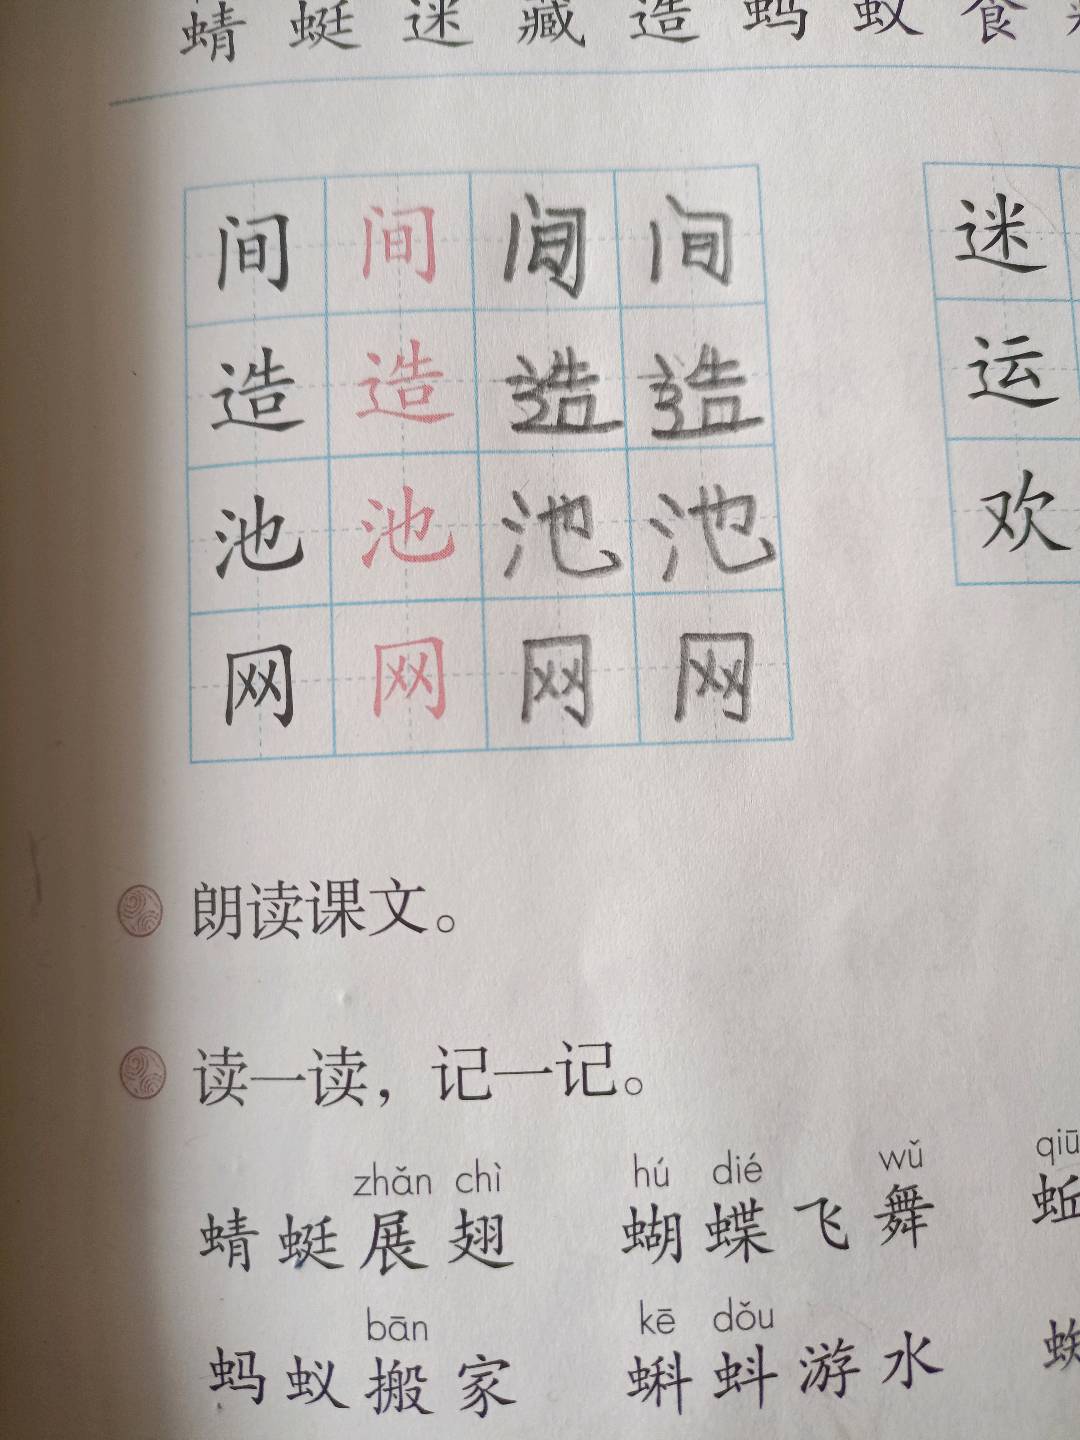 蜻 蜓 迷 藏 造 蚂 蚁 食
间 间 间 间 迷
造 造 造 造 运
池 池 池 池 欢
网 网 网 网
朗读课文。
读一读，记一记。
zhǎn chì hú dié wǔ qiū
蜻 蜓 展 翅 蝴 蝶 飞 舞 蚯
bān kē dǒu
蚂 蚁 搬 家 蝌 蚪 游 水